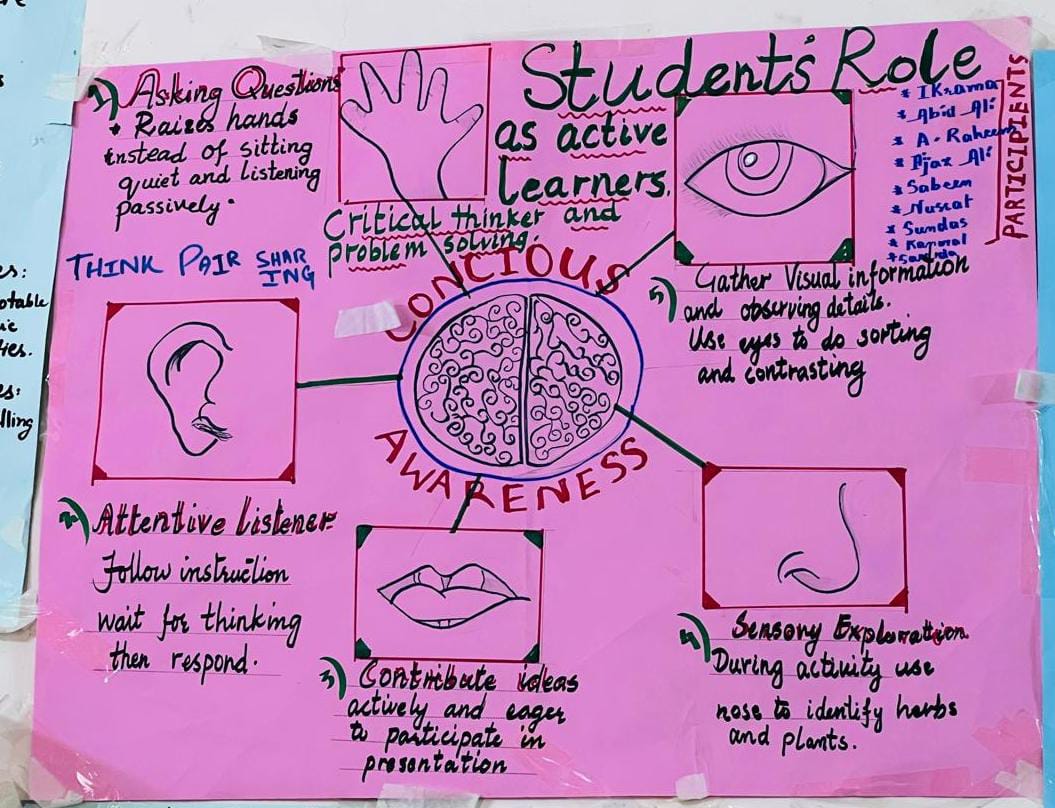 Students' Role
as active
learners.
1) Asking Questions
* Raizes hands
instead of sitting
quiet and listening
passively.
Critical thinker and
problem solving.
THINK PAIR SHAR
ING
CONCIOUS
AWARENESS
PARTICIPIENTS
* IKrama
* Abid Ali
* A. Raheem
* Ajaz Ali
* Sabeen
* Nusrat
* Sundas
* Komal
5) Gather Visual information
and observing details.
Use eyes to do sorting
and contrasting
2) Attentive listener
Follow instruction
wait for thinking
then respond.
3) Contribute ideas
actively and eager
to participate in
presentation
4) Sensory Exploration
During activity use
nose to identify herbs
and plants.